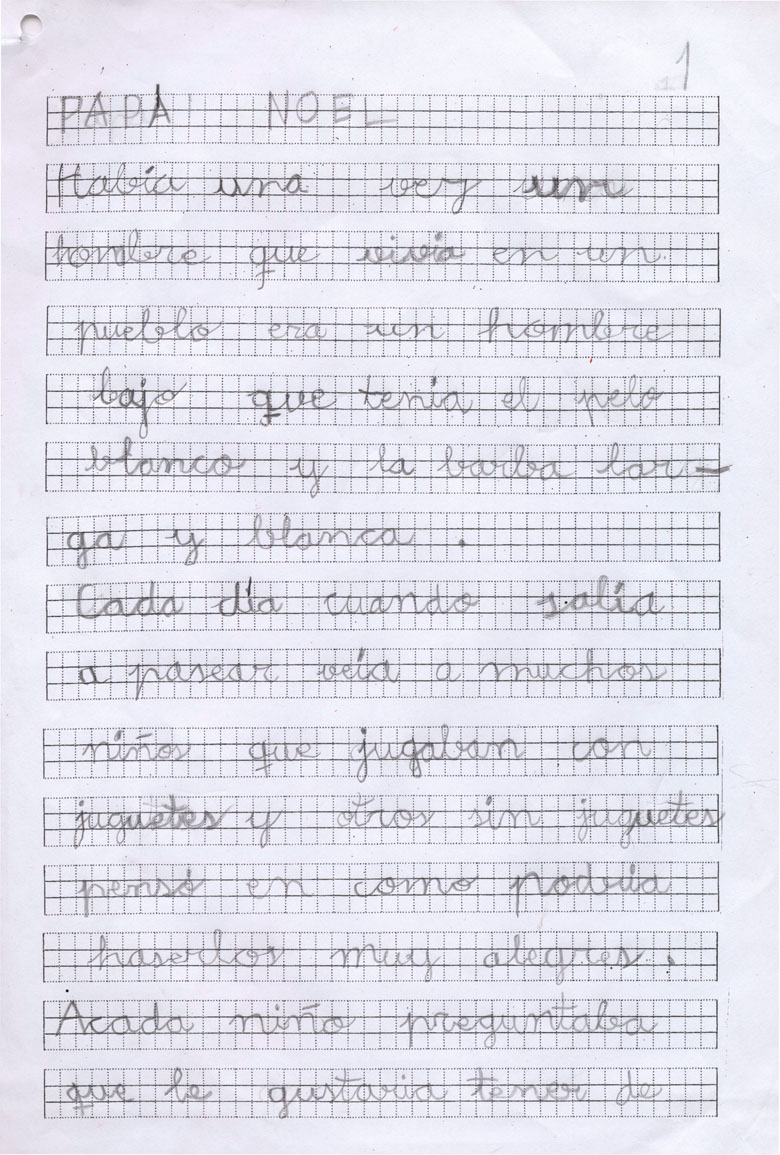 1
PAPÁ NOEL
Había una vez un
hombre que vivía en un
pueblo era un hombre
bajo que tenía el pelo
blanco y la barba lar-
ga y blanca .
Cada día cuando salía
a pasear veía a muchos
niños que jugaban con
juguetes y otros sin juguetes
pensó en como podría
haserlos muy alegres .
Acada niño preguntaba
que le gustaria tener de